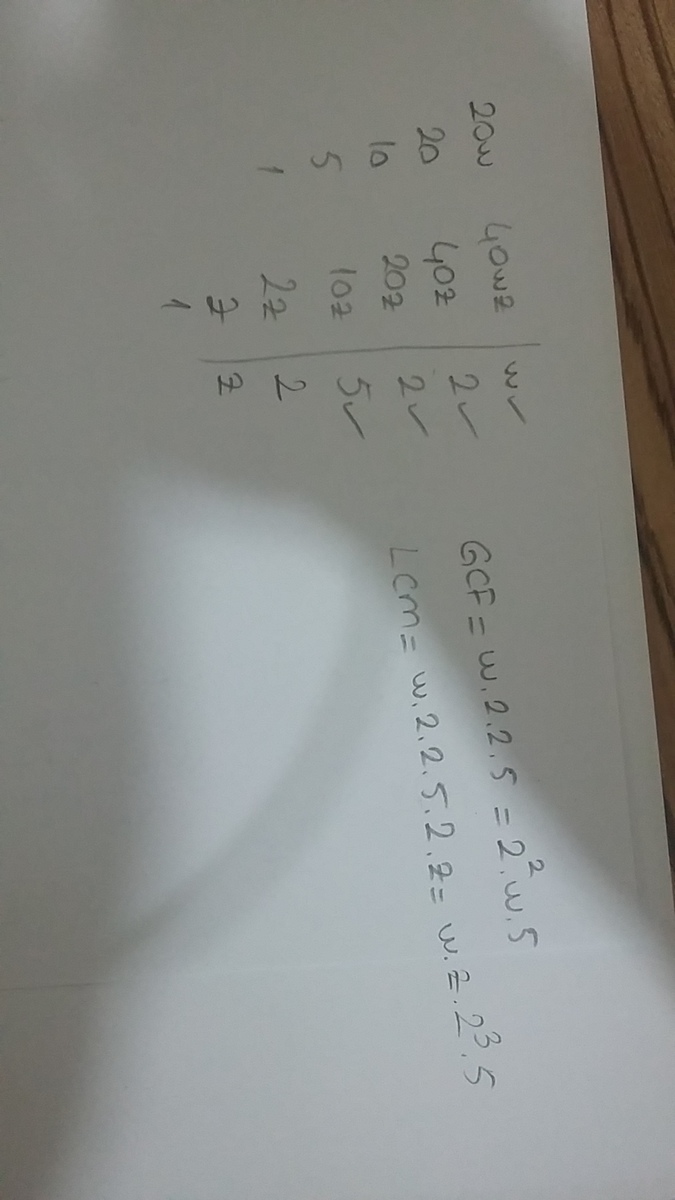 20w 40wz | w✓
20 40z | 2✓
10 20z | 2✓
5 10z | 5✓
1 2z | 2
z | z
1
GCF = w.2.2.5 = 2².w.5
LCM = w.2.2.5.2.z = w.z.2³.5